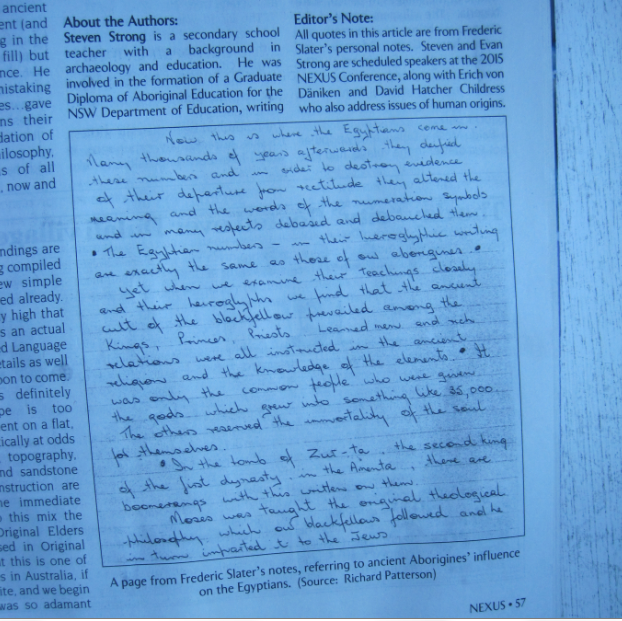 ancient
ent (and
g in the
fill) but
nce. He
mistaking
es...gave
ns their
dation of
ilosophy,
s of all
, now and
ndings are
g compiled
ew simple
ed already.
y high that
s an actual
d Language
etails as well
on to come.
s definitely
pe is too
ent on a flat,
ically at odds
topography,
nd sandstone
nstruction are
he immediate
this mix the
Original Elders
sed in Original
t this is one of
s in Australia, if
ite, and we begin
was so adamant
About the Authors:
Steven Strong is a secondary school
teacher with a background in
archaeology and education. He was
involved in the formation of a Graduate
Diploma of Aboriginal Education for the
NSW Department of Education, writing
Editor's Note:
All quotes in this article are from Frederic
Slater's personal notes. Steven and Evan
Strong are scheduled speakers at the 2015
NEXUS Conference, along with Erich von
Däniken and David Hatcher Childress
who also address issues of human origins.
Now this is where the Egyptians come in.
Many thousands of years afterwards they deified
these numbers and in order to destroy evidence
of their departure from rectitude they altered the
meaning and the words of the numeration symbols
and in many respects debased and debauched them.
• The Egyptian numbers – in their hieroglyphic writing
are exactly the same as those of our aborigines. •
Yet when we examine their Teachings closely
and their heiroglyphs we find that the ancient
cult of the blackfellow prevailed among the
Kings, Princes, Priests Learned men and rich
relations were all instructed in the ancient
religion and the knowledge of the elements • It
was only the common people who were given
the gods which grew into something like 35,000.
The others reserved the immortality of the soul
for themselves.
• In the tomb of Zur-ta, the second king
of the first dynasty in the Amenta, there are
boomerangs with this written on them.
Moses was taught the original theological
philosophy which our blackfellows followed and he
in turn imparted it to the Jews
A page from Frederic Slater's notes, referring to ancient Aborigines' influence
on the Egyptians. (Source: Richard Patterson)
NEXUS • 57